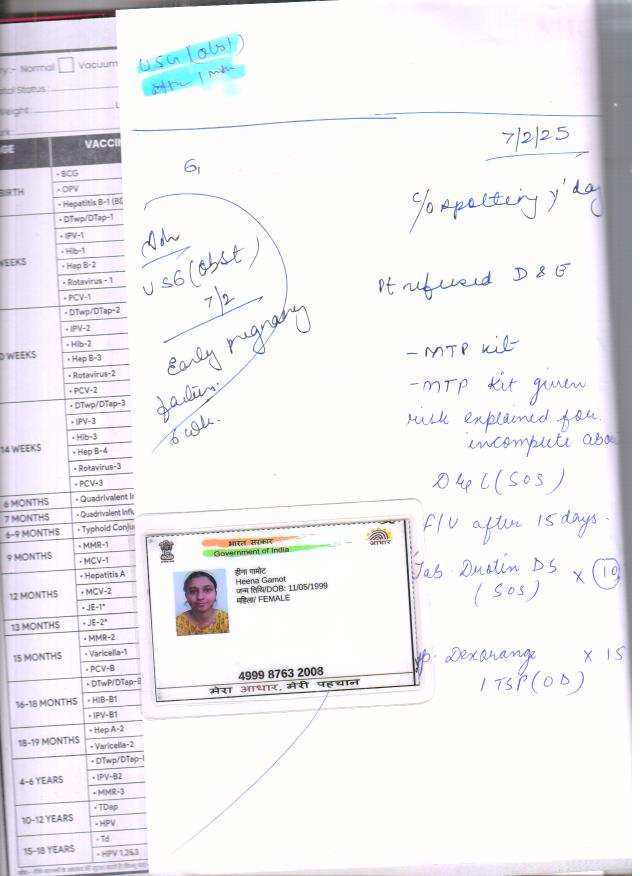 USG (obst)
after 1
7/2/25
6,
c/o spotting y'day
Adv
USG (obst)
7/2
Early pregnancy
failure
6 wk.
Pt refused D & E
- MTP Kit
- MTP Kit given
risk explained for
incomplete abo
D & C (SOS)
F/U after 15 days.
Tab. Duotin DS × 10
(SOS)
yp. Dexorange × 15
1 TSP (OD)
भारत सरकार
Government of India
आधार
हीना गामोट
Heena Gamot
जन्म तिथि/DOB: 11/05/1999
महिला/ FEMALE
4999 8763 2008
मेरा आधार, मेरी पहचान
ry:- Normal Vacuum
tal Status:
Weight:
GE VACCIN
BIRTH
• BCG
• OPV
• Hepatitis B-1 (BD
WEEKS
• DTwp/DTap-1
• IPV-1
• Hib-1
• Hep B-2
• Rotavirus - 1
• PCV-1
0 WEEKS
• DTwp/DTap-2
• IPV-2
• Hib-2
• Hep B-3
• Rotavirus-2
• PCV-2
14 WEEKS
• DTwp/DTap-3
• IPV-3
• Hib-3
• Hep B-4
• Rotavirus-3
• PCV-3
6 MONTHS • Quadrivalent In
7 MONTHS • Quadrivalent Influ
6-9 MONTHS • Typhoid Conju
9 MONTHS
• MMR-1
• MCV-1
12 MONTHS
• Hepatitis A
• MCV-2
• JE-1*
13 MONTHS • JE-2*
15 MONTHS
• MMR-2
• Varicella-1
• PCV-B
16-18 MONTHS
• DTwP/DTap-B
• HIB-B1
• IPV-B1
18-19 MONTHS
• Hep A-2
• Varicella-2
4-6 YEARS
• DTwp/DTap-
• IPV-B2
• MMR-3
10-12 YEARS
• TDap
• HPV
15-18 YEARS
• Td
• HPV 1,2&3